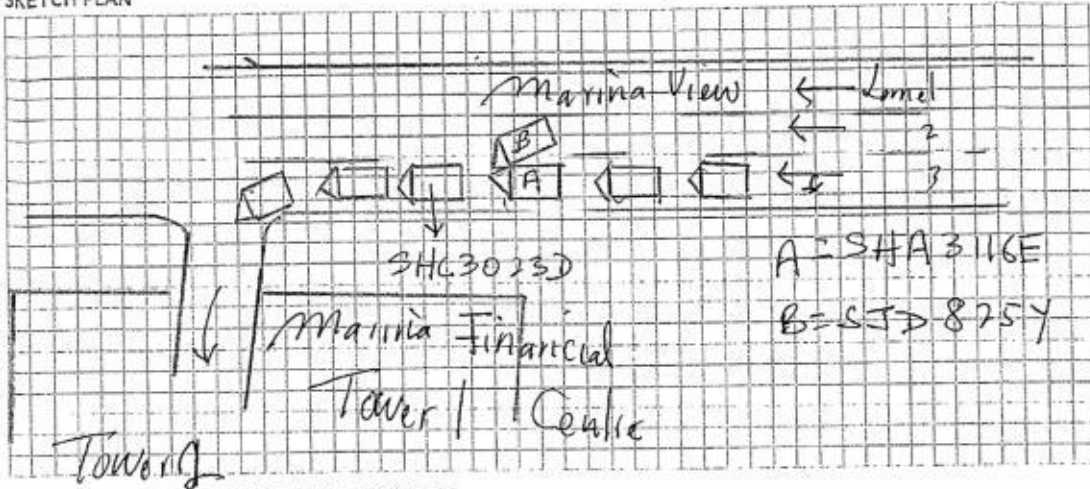 SKETCH PLAN
Marina View ← Lane1
← 2
← 3
B
A
SHC3023D
A = SHA3116E
B = SJD 825Y
Marina Financial
Tower 1 Centre
Tower 2